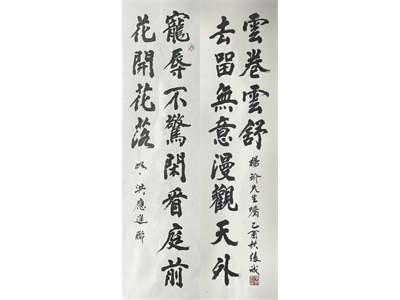 寵辱不驚閑看庭前
花開花落
明·洪應進聯
去留無意漫觀天外
雲卷雲舒
先生囑乙酉秋